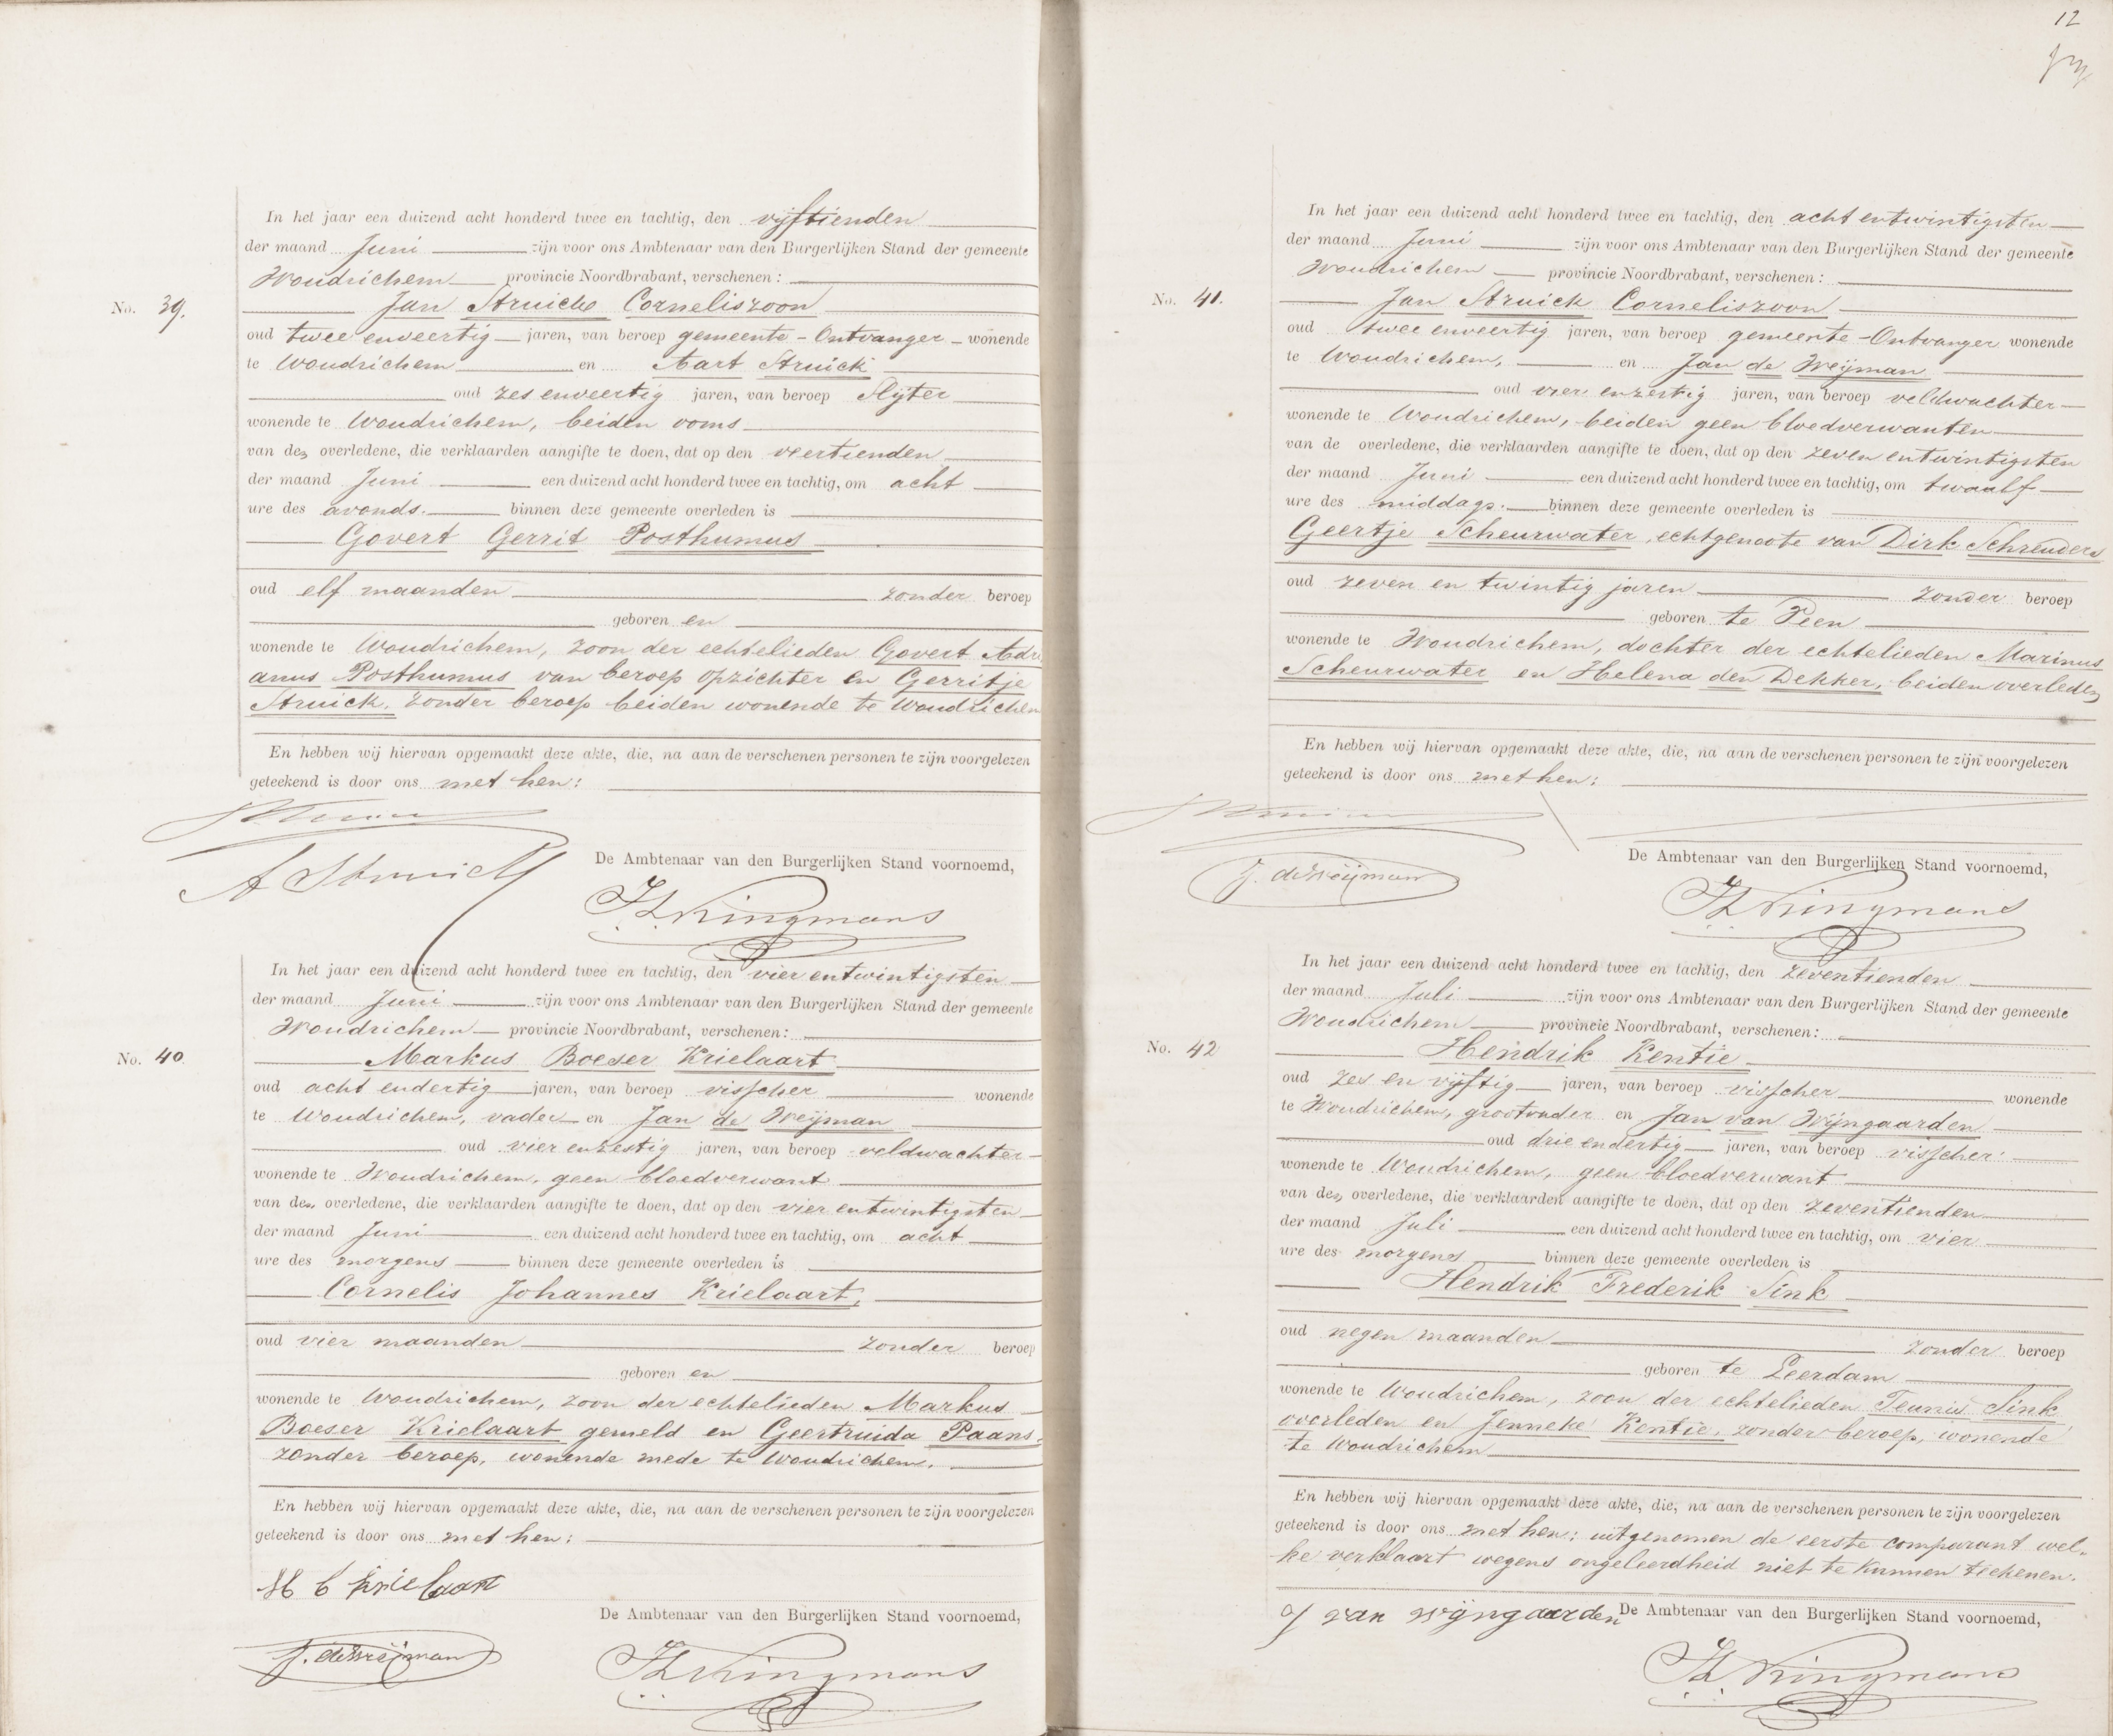 In het jaar een duizend acht honderd twee en tachtig, den vijftienden
der maand Juni zijn voor ons Ambtenaar van den Burgerlijken Stand der gemeente
Woudrichem provincie Noordbrabant, verschenen:
No. 39.
Jan Struick Corneliszoon
oud twee enveertig jaren, van beroep gemeente - Ontvanger wonende
te Woudrichem en Aart Struick
oud zes enveertig jaren, van beroep Slijter
wonende te Woudrichem, beiden ooms
van den overledene, die verklaarden aangifte te doen, dat op den veertienden
der maand Juni een duizend acht honderd twee en tachtig, om acht
ure des avonds. binnen deze gemeente overleden is
Govert Gerrit Posthumus
oud elf maanden zonder beroep
geboren en
wonende te Woudrichem, zoon der echtelieden Govert Adri
anus Posthumus van beroep opzichter en Gerritje
Struick, zonder beroep beiden wonende te Woudrichem
En hebben wij hiervan opgemaakt deze akte, die, na aan de verschenen personen te zijn voorgelezen
geteekend is door ons met hen:
A Struick
De Ambtenaar van den Burgerlijken Stand voornoemd,
Kingmans
In het jaar een duizend acht honderd twee en tachtig, den vier entwintigsten
der maand Juni zijn voor ons Ambtenaar van den Burgerlijken Stand der gemeente
Woudrichem provincie Noordbrabant, verschenen:
No. 40
Markus Boeser Krielaart
oud acht endertig jaren, van beroep visscher wonende
te Woudrichem, vader en Jan de Weijman
oud vier enzestig jaren, van beroep veldwachter
wonende te Woudrichem, geen bloedverwant
van den overledene, die verklaarden aangifte te doen, dat op den vier entwintigsten
der maand Juni een duizend acht honderd twee en tachtig, om acht
ure des morgens binnen deze gemeente overleden is
Cornelis Johannes Krielaart,
oud vier maanden zonder beroep
geboren en
wonende te Woudrichem, zoon der echtelieden Markus
Boeser Krielaart gemeld en Geertruida Paans,
zonder beroep, wonende mede te Woudrichem.
En hebben wij hiervan opgemaakt deze akte, die, na aan de verschenen personen te zijn voorgelezen
geteekend is door ons met hen:
M b krielaart
De Ambtenaar van den Burgerlijken Stand voornoemd,
J. de Weijman
Kingmans
12
In het jaar een duizend acht honderd twee en tachtig, den acht entwintigsten
der maand Juni zijn voor ons Ambtenaar van den Burgerlijken Stand der gemeente
Woudrichem provincie Noordbrabant, verschenen:
No. 41.
Jan Struick Corneliszoon
oud twee enveertig jaren, van beroep gemeente - Ontvanger wonende
te Woudrichem, en Jan de Weijman
oud vier enzestig jaren, van beroep veldwachter
wonende te Woudrichem, beiden geen bloedverwanten
van de overledene, die verklaarden aangifte te doen, dat op den zeven entwintigsten
der maand Juni een duizend acht honderd twee en tachtig, om twaalf
ure des middags. binnen deze gemeente overleden is
Geertje Scheurwater, echtgenoote van Dirk Schreuders
oud zeven en twintig jaren zonder beroep
geboren te Peen
wonende te Woudrichem, dochter der echtelieden Marinus
Scheurwater en Helena den Dekker, beiden overleden
En hebben wij hiervan opgemaakt deze akte, die, na aan de verschenen personen te zijn voorgelezen
geteekend is door ons met hen:
De Ambtenaar van den Burgerlijken Stand voornoemd,
J. de Weijman
Kingmans
In het jaar een duizend acht honderd twee en tachtig, den zeventienden
der maand Juli zijn voor ons Ambtenaar van den Burgerlijken Stand der gemeente
Woudrichem provincie Noordbrabant, verschenen:
No. 42
Hendrik Kentie
oud zes en vijftig jaren, van beroep visscher wonende
te Woudrichem, grootvader en Jan van Wijngaarden
oud drie endertig jaren, van beroep visscher
wonende te Woudrichem, geen bloedverwant
van den overledene, die verklaarden aangifte te doen, dat op den zeventienden
der maand Juli een duizend acht honderd twee en tachtig, om vier
ure des morgens binnen deze gemeente overleden is
Hendrik Frederik Sink
oud negen maanden zonder beroep
geboren te Leerdam
wonende te Woudrichem, zoon der echtelieden Teunis Sink
overleden en Jenneke Kentie, zonder beroep, wonende
te Woudrichem
En hebben wij hiervan opgemaakt deze akte, die, na aan de verschenen personen te zijn voorgelezen
geteekend is door ons met hen: uitgenomen de eerste comparant wel-
ke verklaart wegens ongeleerdheid niet te kunnen teekenen.
J van Wijngaarden De Ambtenaar van den Burgerlijken Stand voornoemd,
Kingmans